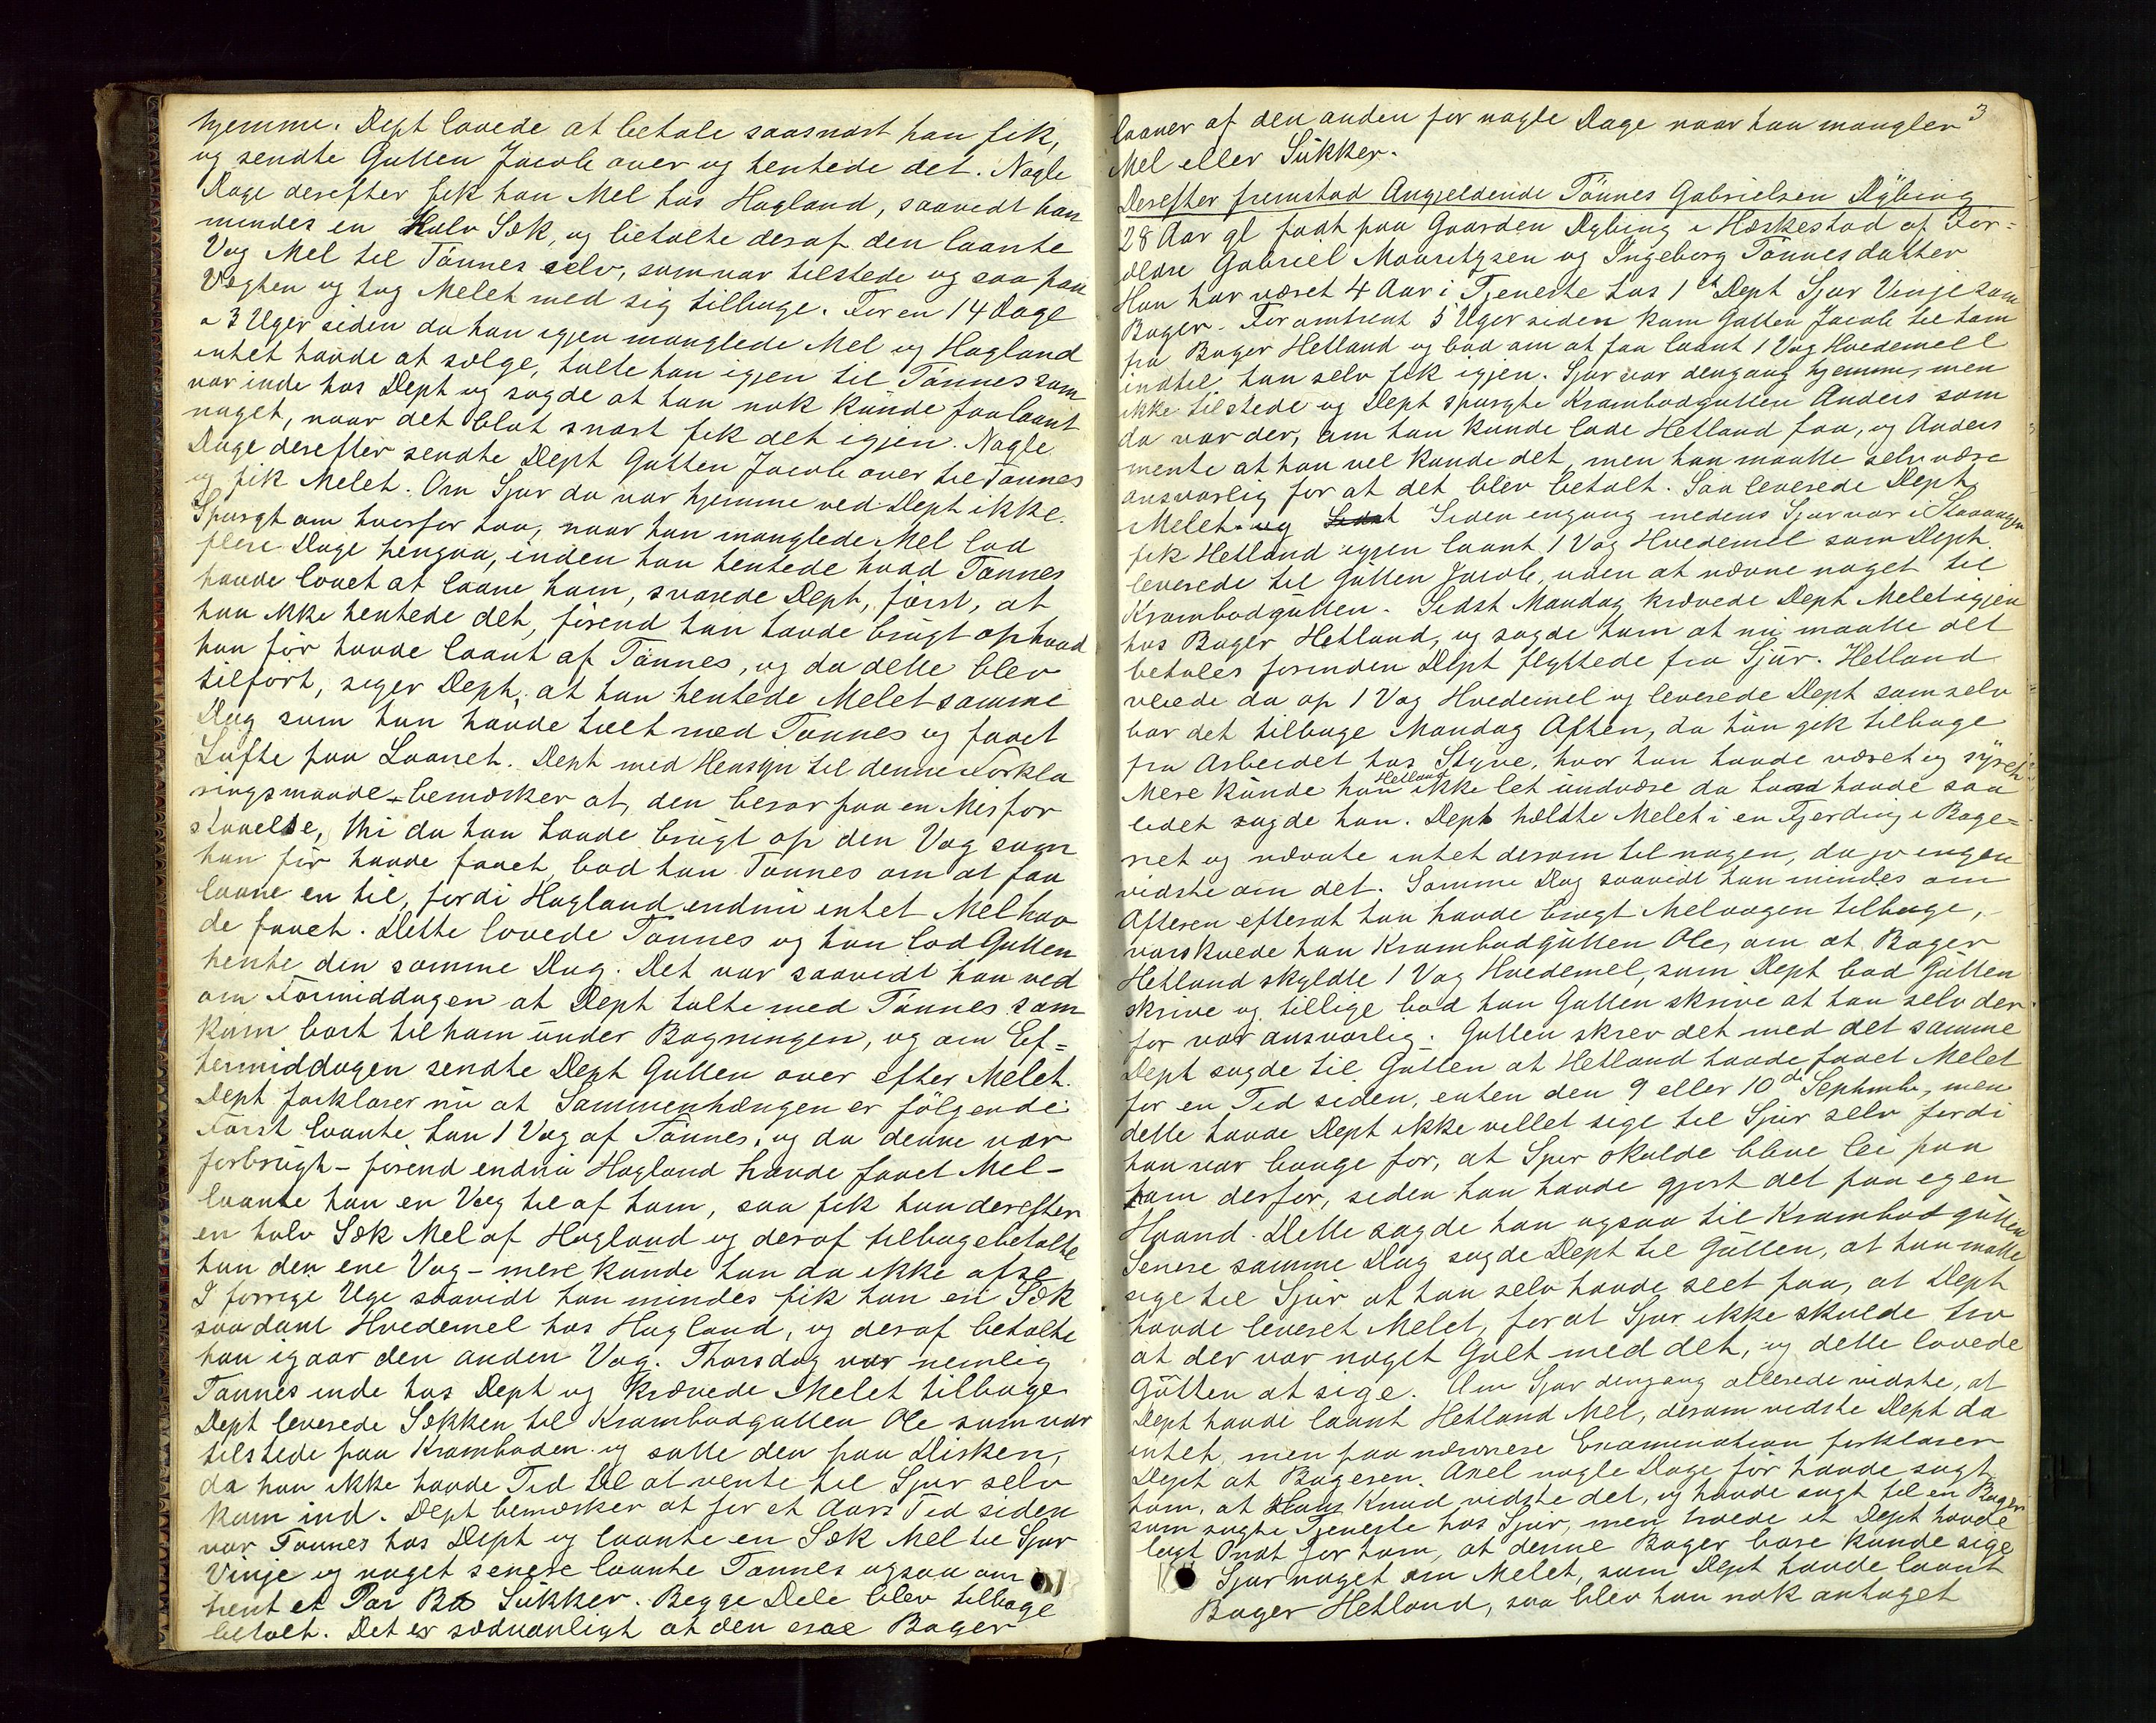 hjemme. Dept lovede at betale saasnart han fik,
og sendte Gutten Jacob over og hentede det. Nogle
Dage derefter fik han Mel hos Hagland, saavidt han
mindes en Halv Sæk, og betalte deraf den laante
Vog Mel til Tönnes selv, som var tilstede og saa paa
Vægten og tog Melet med sig tilbage. For en 14 Dage
a 3 Uger siden da han igjen manglede Mel og Hagland
intet havde at sælge, talte han igjen til Tönnes som
var inde hos Dept og sagde at han nok kunde faa laant
noget, naar det blot snart fik det igjen. Nogle
Dage derefter sendte Dept Gutten Jacob over til Tönnes
og fik Melet. Om Sjur da var hjemme ved Dept ikke.
Spurgt om hvorfor han, naar han manglede Mel lod
flere Dage hengaa, inden han hentede hvad Tönnes
havde lovet at laane ham, svarede Dept, först, at
han ikke hentede det, förend han havde brugt op hvad
han för havde laant af Tönnes, og da dette blev
tilfört, siger Dept, at han hentede Melet samme
Dag som han havde talt med Tönnes og faaet
Löfte paa Laanet. Dept med Hensyn til denne Forkla
ringsmaade bemærker at den beror paa en Misfor
staaelse, thi da han havde brugt op den Vog som
han för havde faaet, bad han Tönnes om at faa
laane en til, fordi Hagland endnu intet Mel hav
de faaet. Dette lovede Tönnes og han lod Gutten
hente den samme Dag. Det var saavidt han ved
om Formiddagen at Dept talte med Tönnes som
kom bort til ham under Bagningen, og om Ef=
termiddagen sendte Dept Gutten over efter Melet.
Dept forklarer nu at Sammenhængen er fölgende:
Först laante han 1 Vog af Tönnes, og da denne var
forbrugt – förend endnu Hagland havde faaet Mel –
laante han en Vog til af ham, saa fik han derefter
en halv Sæk Mel af Hagland og deraf tilbagebetalte
han den ene Vog – mere kunde han da ikke afse
I forrige Uge saavidt han mindes fik han en Sæk
saadant Hvedemel hos Hagland, og deraf betalte
han igaar den anden Vog. Thorsdag var nemlig
Tönnes inde hos Dept og krævede Melet tilbage
Dept leverede Sækken til Krambodgutten Ole som var
tilstede paa Kramboden og satte den paa Disken,
da han ikke havde Tid til at vente til Sjur selv
kom ind. Dept bemærker at for et Aars Tid siden
var Tönnes hos Dept og laante en Sæk Mel til Sjur
Vinje og noget senere laante Tönnes ogsaa om
trent et Par Sukker. Begge Dele blev tilbage
betalt. Det er sædvanligt at den ene Bager
3
laaner af den anden for nogle Dage naar han mangler
Mel eller Sukker.
Derefter fremstod Angjeldende Tönnes Gabrielsen Dÿbing
28 Aar gl født paa Gaarden Dybing i Hæskestad af For=
ældre Gabriel Mauritzsen og Ingeborg Tönnesdatter
Han har været 4 Aar i Tjeneste hos 1st Dept Sjur Vinje som
Bager. For omtrent 5 Uger siden kom Gutten Jacob til ham
fra Bager Hetland og bad om at faa laant 1 Vog Hvedemel
indtil han selv fik igjen. Sjur var dengang hjemme, men
ikke tilstede og Dept spurgte Krambodgutten Anders som
da var der, om han kunde lade Hetland faa, og Anders
mente at han vel kunde det, men han maatte selv være
ansvarlig for at det blev betalt. Saa leverede Dept
Melet. Siden engang medens Sjur var i Stavanger
fik Hetland igjen laant 1 Vog Hvedemel som Dept
leverede til Gutten Jacob, uden at nævne noget til
Krambodgutten. Sidst Mandag krævede Dept Melet igjen
hos Bager Hetland, og sagde ham at nu maatte det
betales forinden Dept flyttede fra Sjur. Hetland
veiede da op 1 Vog Hvedemel og leverede Dept som selv
bar det tilbage Mandag Aften, da han gik tilbage
fra Arbeidet hos Styve, hvor han havde været og
Mere kunde Hetland ikke let undvære da han havde saa
lidet sagde han. Dept hældte Melet i en Fjerding i Bage=
riet og nævnte intet derom til nogen, da jo ingen
vidste om det. Samme Dag saavidt han mindes om
Aftenen efterat han havde bragt Melvogen tilbage,
varskuede han Krambodgutten Ole, om at Bager
Hetland skyldte 1 Vog Hvedemel, som Dept bad Gutten
skrive og tillige bad han Gutten skrive at han selv der
for var ansvarlig. Gutten skrev det med det samme
Dept sagde til Gutten at Hetland havde faaet Melet
for en Tid siden, enten den 9 eller 10de Septembr, men
dette havde Dept ikke villet sige til Sjur selv fordi
han var bange for, at Sjur skulde blive lei paa
ham derfor, siden han havde gjort det paa egen
Haand. Dette sagde han ogsaa til Krambodgutten
Senere samme Dag sagde Dept til Gutten, at han maatte
sige til Sjur at han selv havde seet paa, at Dept
havde leveret Melet, for at Sjur ikke skulde tro
at der var noget Galt med det, og dette lovede
Gutten at sige. Om Sjur dengang allerede vidste, at
Dept havde laant Hetland Mel, derom vidste Dept da
intet, men paa nærmere Examination forklarer
Dept at Bageren Axel nogle Dage för havde sagt
ham, at Knud vidste det, og havde sagt til en Bager
som sögte Tjeneste hos Sjur, men troede at Dept havde
lagt Ondt for ham, at denne Bager bare kunde sige
Sjur noget om Melet, som Dept havde laant
Bager Hetland, saa blev han nok antaget